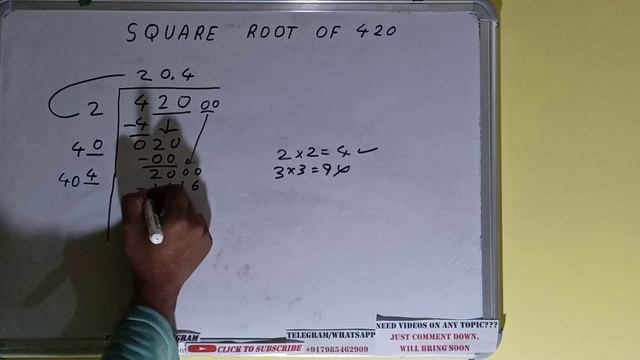 SQUARE ROOT OF 420
20.4
2 420 00
-4
40 020
-00
404 2000
- 1616
2×2=4 ✓
3×3=9
GRAM
TELEGRAM/WHATSAPP
CLICK TO SUBSCRIBE +917985462909
NEED VIDEOS ON ANY TOPIC???
JUST COMMENT DOWN,
WILL BRING SOON